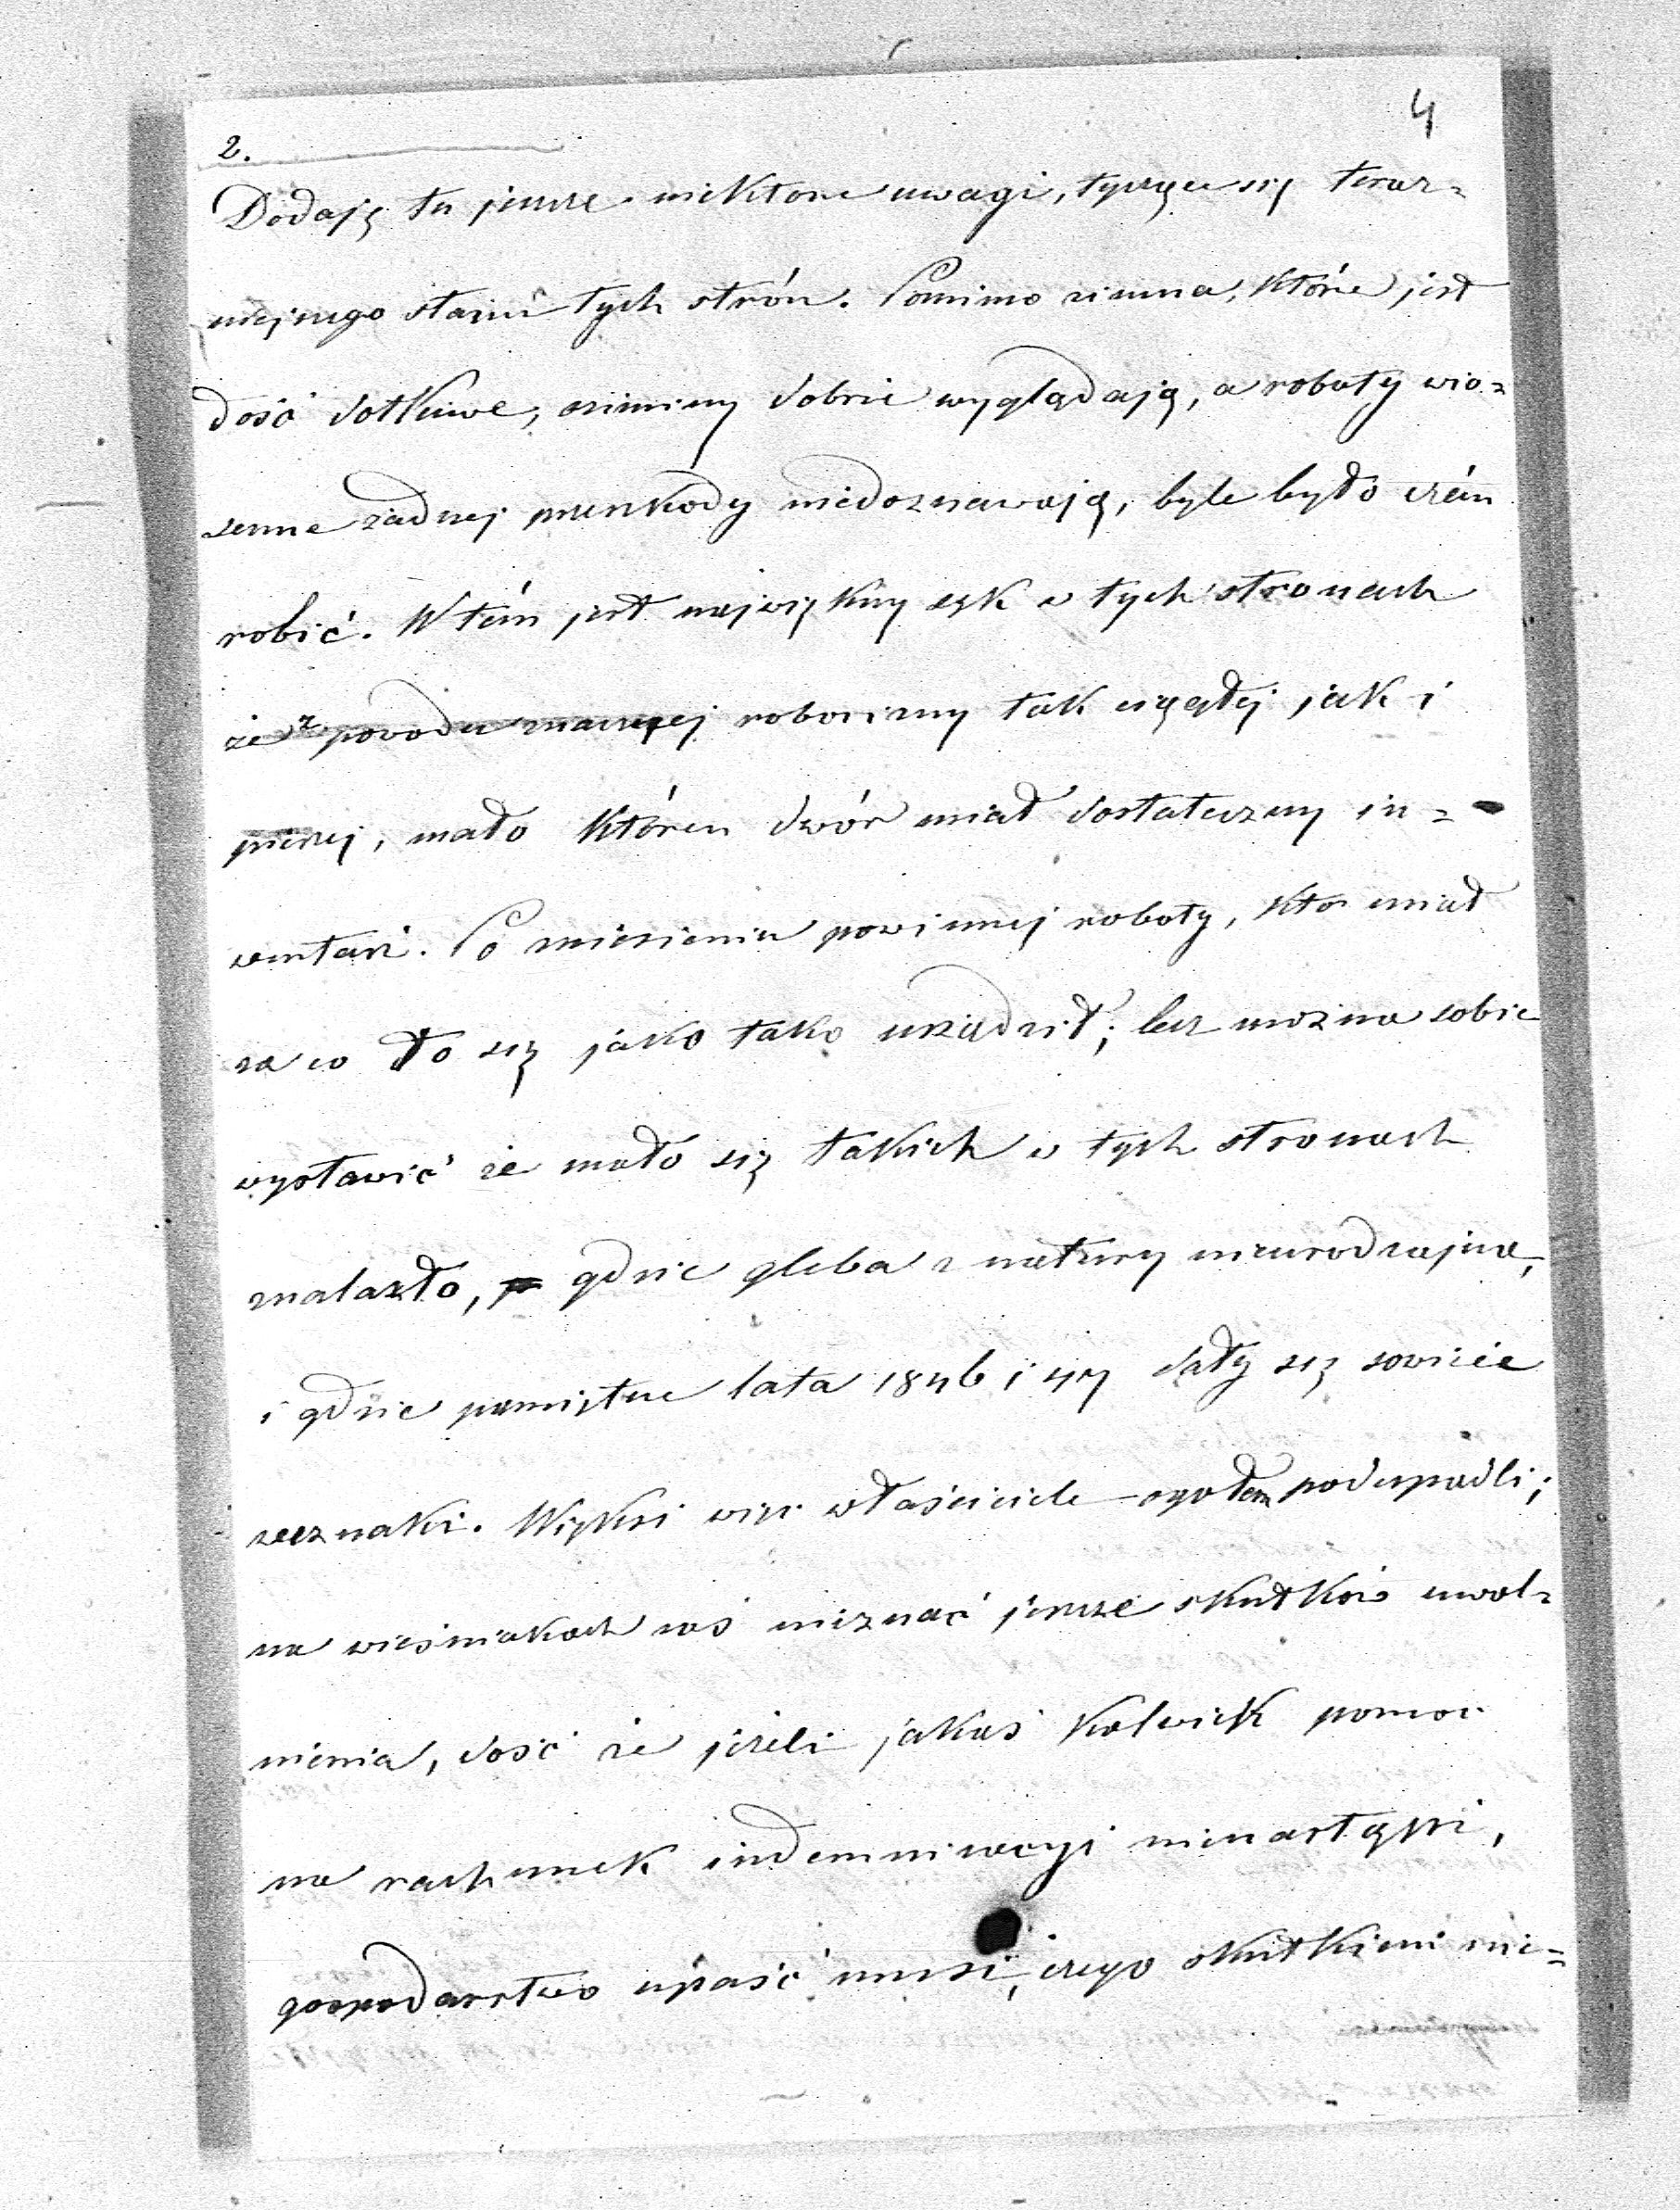 4
2.
Dodaję tu jeszcze niektóre uwagi, tyczące się teraz=
niejszego stanu tych strón. Pomimo zimna, które jest
dość dotkliwe, oziminy dobrze wyglądają, a roboty wio=
senne żadnej przeszkody niedoznawają, byle było czém
robić. W tém jest największy sęk w tych stronach
że z powodu znacznej robocizny tak ciągłej jak i
pieszej, mało któren dwór miał dostateczny in=
wentarz. Po zniesieniu powinnej roboty, kto miał
za co to się jako tako urządził; lecz można sobie
wystawić że mało się takich w tych stronach
znalazło, gdzie gleba z natury nieurodzajna,
i gdzie pamiętne lata 1846 i 47 dały się sowicie
weznaki. Więksi więc właściciele ogółem podupadli;
na wieśniakach zaś nieznać jeszcze skutków uwol=
nienia, dość że jeżeli jakaś kolwiek pomoc
na rachunek indemnizacyi nienastąpi,
gospodarstwo upaść musi, czego skutkiem nie=